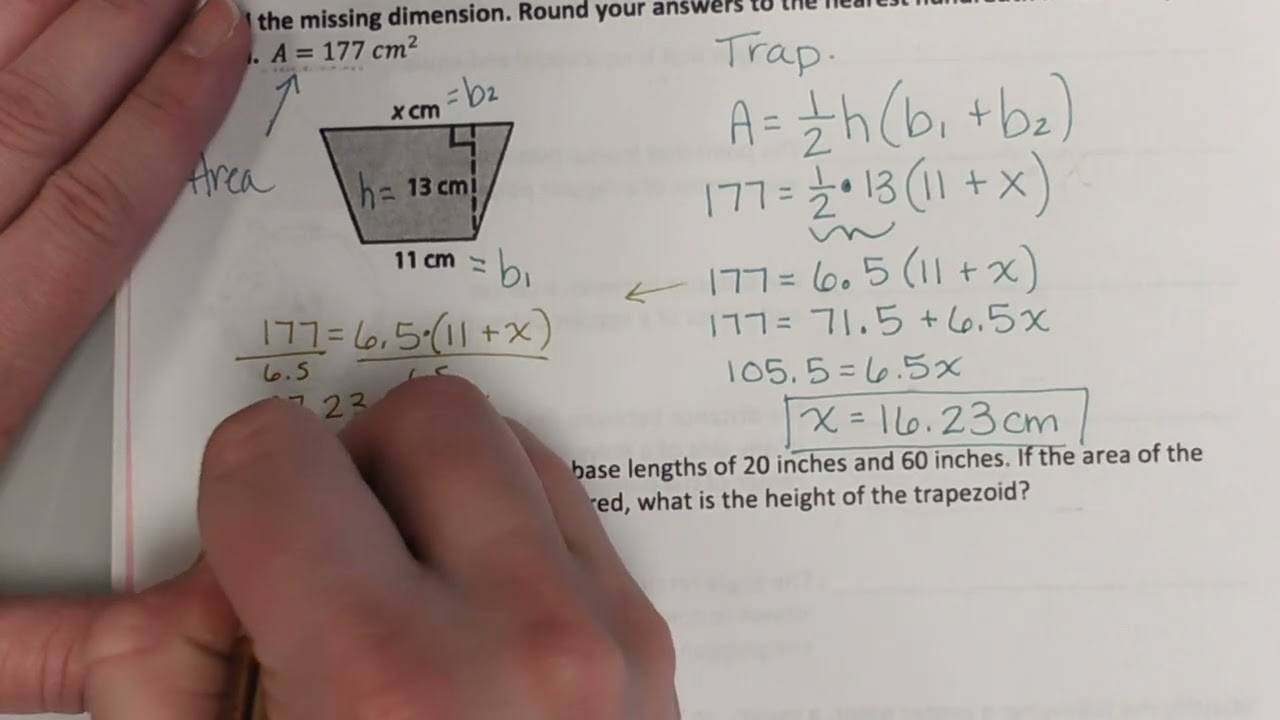 the missing dimension. Round your answers to the nearest
. A = 177 cm²
Area
x cm = b₂
h = 13 cm
11 cm = b₁
Trap.
A = 1/2 h(b₁ + b₂)
177 = 1/2 • 13 (11 + x)
177 = 6.5 (11 + x)
177 = 71.5 + 6.5x
105.5 = 6.5x
x = 16.23 cm
177 = 6.5•(11 + x)
6.5
base lengths of 20 inches and 60 inches. If the area of the
what is the height of the trapezoid?